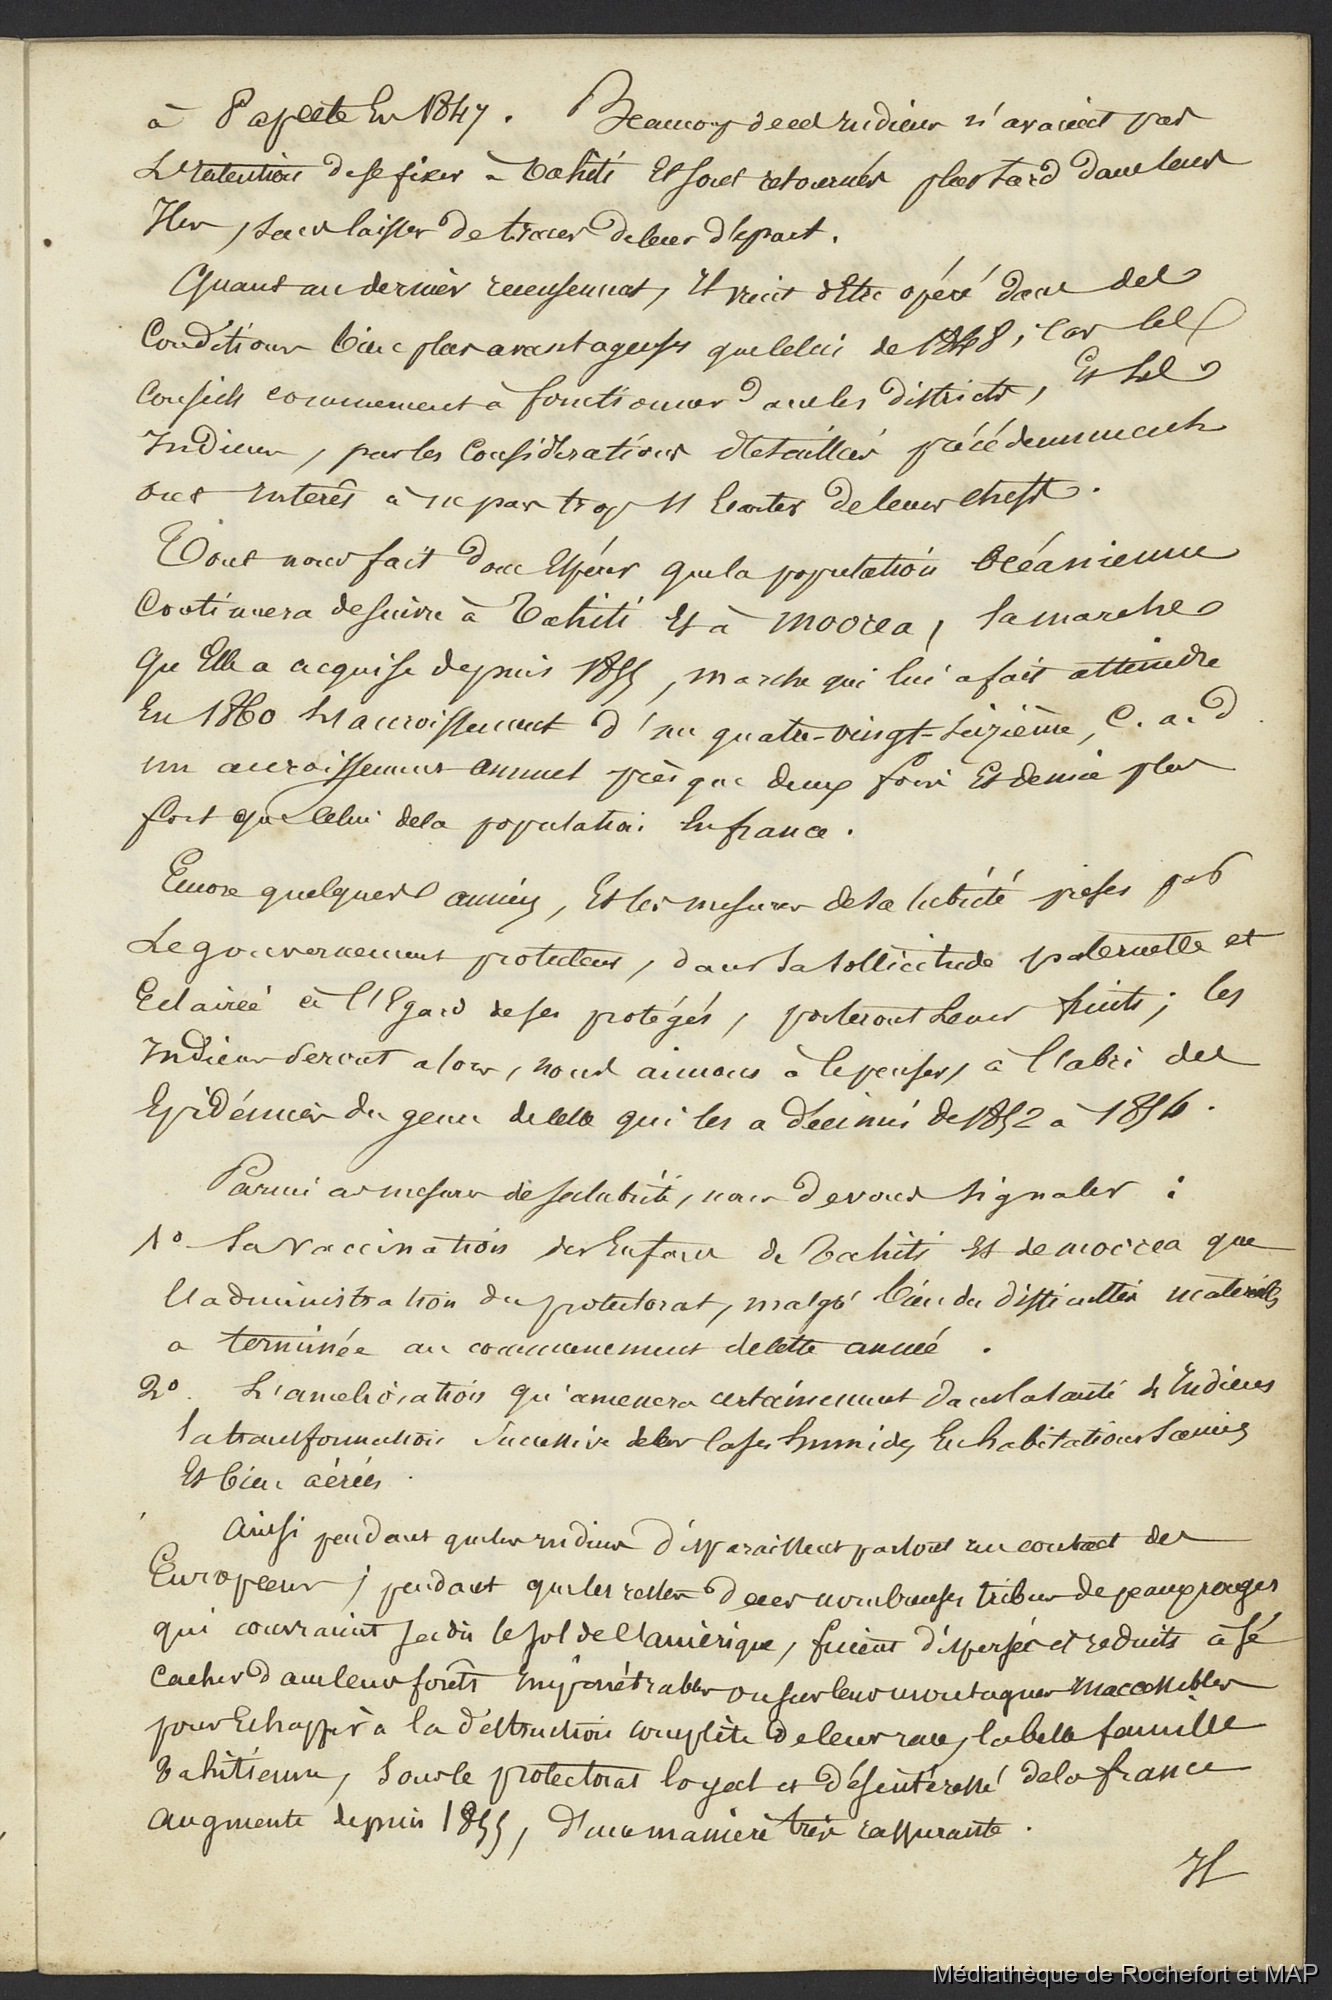 à Papeete en 1847. Beaucoup de ces indiens n'avaient pas
L'intention de se fixer à Tahiti et sont retournés plus tard dans leurs
Iles, sans laisser de traces de leur départ.
Quant au dernier recensement, il vient d'être opéré dans des
Conditions bien plus avantageuses que celui de 1848, car les
Conseils commencent à fonctionner dans les districts, et les
Indiens, par les considérations détaillées précédemment
ont intérêt à ne pas trop s'écarter de leurs chefs.
Tout nous fait donc espérer que la population Océanienne
Continuera de suivre à Tahiti et à Moorea, la marche
qu'elle a acquise depuis 1855, marche qui lui a fait atteindre
en 1860 l'accroissement d'un quatre-vingt-seizième, c. a. d
un accroissement annuel presque deux fois et demie plus
fort que celui de la population en france.
Encore quelques années, et les mesures de salubrité prises par
Le gouvernement protecteur, dans sa sollicitude paternelle et
Eclairée à l'égard de ses protégés, porteront leurs fruits; les
Indiens seront alors, nous aimons à le penser, à l'abri des
Epidémies du genre de celle qui les a décimés de 1852 à 1854.
Parmi ces mesures de salubrité, nous devons signaler :
1º La vaccination des Enfans de Tahiti et de moorea que
l'administration du protectorat, malgré bien des difficultés matérielles
a terminée au commencement de cette année.
2º. L'amélioration qu'amenera certainement dans la santé des Indiens
la transformation successive de leurs cases humides en habitations saines
et bien aérées.
Ainsi pendant que les indiens disparaissent partout au contact des
Européens; pendant que les restes de ces nombreuses tribus de peaux rouges
qui couvraient jadis le sol de l'amérique, fuient dispersés et réduits à se
Cacher dans leurs forêts impénétrables ou sur leurs montagnes inaccessibles
pour échapper à la destruction complète de leur race, la belle famille
Tahitienne, sous le protectorat loyal et désintéressé de la france
augmente depuis 1855, d'une manière très rassurante.
Il
Médiathèque de Rochefort et MAP